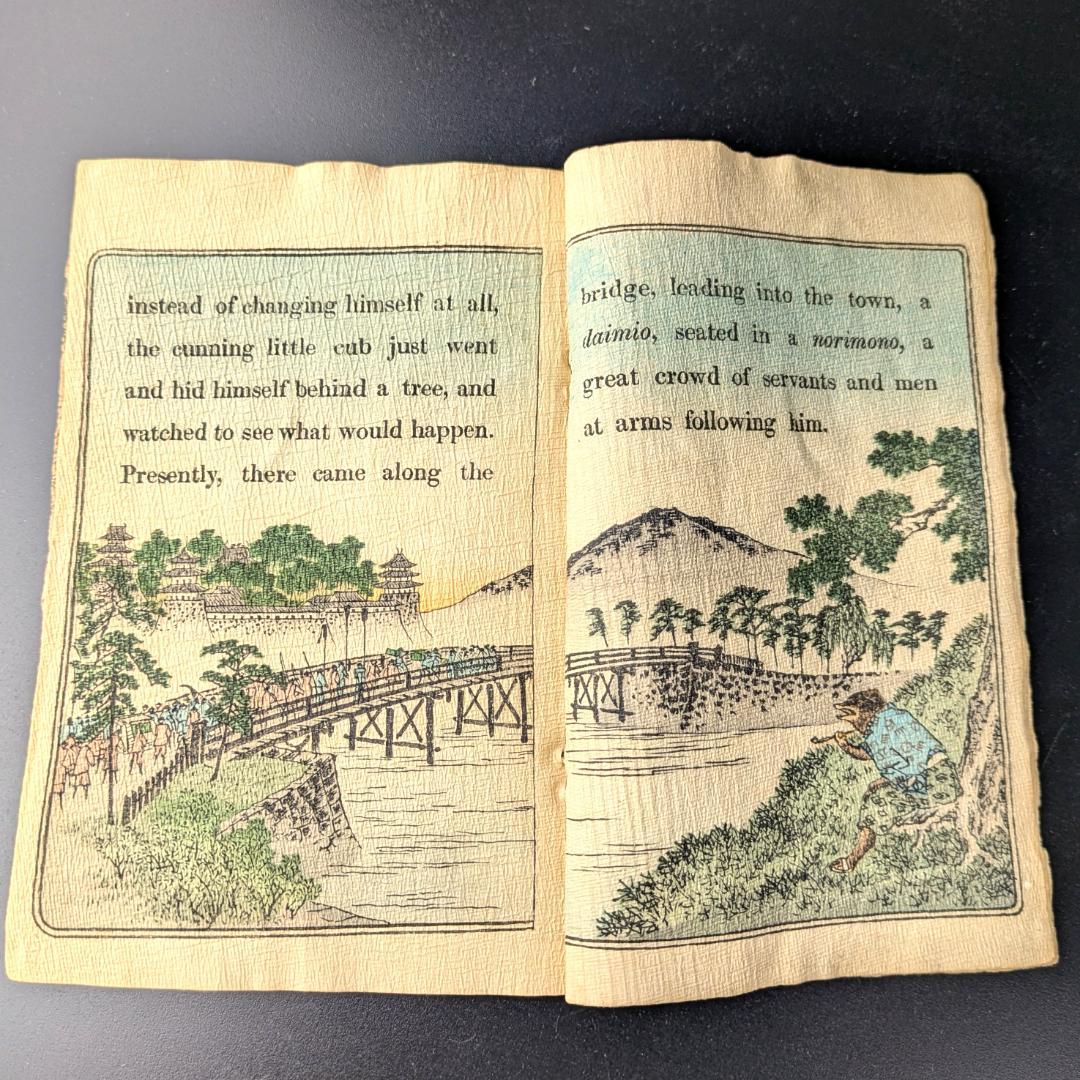 instead of changing himself at all,
the cunning little cub just went
and hid himself behind a tree, and
watched to see what would happen.
Presently, there came along the
bridge, leading into the town, a
daimio, seated in a norimono, a
great crowd of servants and men
at arms following him.